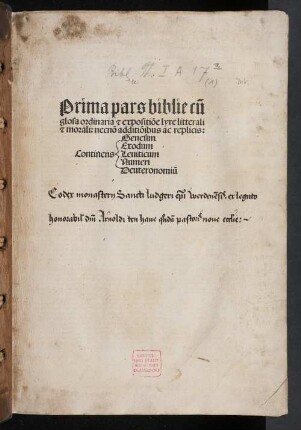 Bibl. II. I A 17
Prima pars biblie cū
glosa ordinaria ⁊ expositiōe lyre litterali
⁊ morali: necnō additiōibus ac replicis:
Genesim
Exodum
Continens Leuiticum
Numeri
Deuteronomiū
Codex monastery Sancti ludgeri epi werdenēs ex legato
honorabil dm̄ Arnoldi ten haue pastor noue ecclie:~